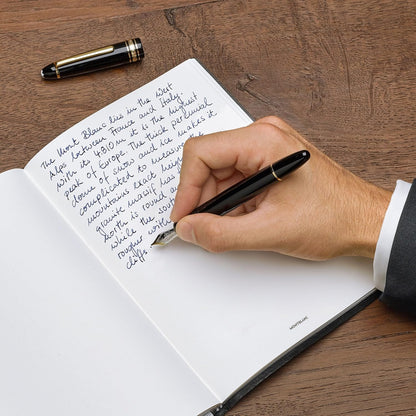 The Mont Blanc lies in the West
Alps between France and Italy.
With its 4810 m it is the highest
peak of Europe. The thick perennial
dome of snow and ice makes it
complicated to measure the
mountains exact heigh
granite massif has
North is round a
while the sout
rougher wit
cliffs.
MONTBLANC